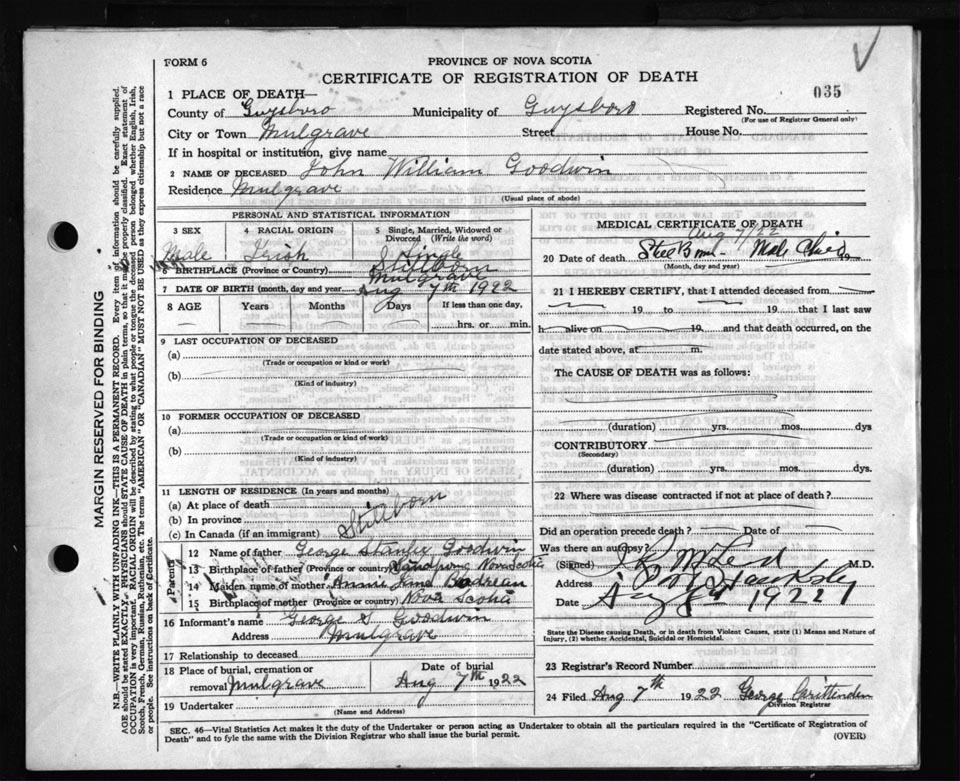 FORM 6
PROVINCE OF NOVA SCOTIA
CERTIFICATE OF REGISTRATION OF DEATH
035
1 PLACE OF DEATH—
County of Guysboro Municipality of Guysboro Registered No.
(For use of Registrar General only)
City or Town Mulgrave Street House No.
If in hospital or institution, give name
2 NAME OF DECEASED John William Goodwin
Residence Mulgrave
(Usual place of abode)
PERSONAL AND STATISTICAL INFORMATION
3 SEX 4 RACIAL ORIGIN 5 Single, Married, Widowed or Divorced (Write the word)
Male Irish Single
Stillborn
6 BIRTHPLACE (Province or Country) Mulgrave
7 DATE OF BIRTH (month, day and year) Aug 7th 1922
8 AGE Years Months Days If less than one day,
hrs. or min.
9 LAST OCCUPATION OF DECEASED
(a)
(Trade or occupation or kind of work)
(b)
(Kind of industry)
10 FORMER OCCUPATION OF DECEASED
(a)
(Trade or occupation or kind of work)
(b)
(Kind of industry)
11 LENGTH OF RESIDENCE (In years and months)
(a) At place of death
(b) In province
(c) In Canada (if an immigrant)
Stillborn
Parents
12 Name of father George Stanley Goodwin
13 Birthplace of father (Province or country) Nova Scotia
14 Maiden name of mother Annie Bodreau
15 Birthplace of mother (Province or country) Nova Scotia
16 Informant's name George S Goodwin
Address Mulgrave
17 Relationship to deceased
18 Place of burial, cremation or removal Mulgrave
Date of burial Aug 7th 1922
19 Undertaker
(Name and Address)
MEDICAL CERTIFICATE OF DEATH
Aug 7/22
20 Date of death Still Born - Male Child
(Month, day and year)
21 I HEREBY CERTIFY, that I attended deceased from
19 to 19 that I last saw
h alive on 19 and that death occurred, on
date stated above, at m.
The CAUSE OF DEATH was as follows:
(duration) yrs. mos. dys
CONTRIBUTORY
(Secondary)
(duration) yrs. mos. dys.
22 Where was disease contracted if not at place of death?
Did an operation precede death? Date of
Was there an autopsy?
(Signed) M.D.
Address
Date Aug 1922
State the Disease causing Death, or in death from Violent Causes, state (1) Means and Nature of
Injury, (2) whether Accidental, Suicidal or Homicidal.
23 Registrar's Record Number
24 Filed Aug 7th 1922 George Crittenden
Division Registrar
SEC. 46—Vital Statistics Act makes it the duty of the Undertaker or person acting as Undertaker to obtain all the particulars required in the "Certificate of Registration of
Death" and to fyle the same with the Division Registrar who shall issue the burial permit.
(OVER)
MARGIN RESERVED FOR BINDING
N.B.—WRITE PLAINLY WITH UNFADING INK—THIS IS A PERMANENT RECORD. Every item of information should be carefully supplied.
AGE should be stated EXACTLY. PHYSICIANS should STATE CAUSE OF DEATH in plain terms, so that it may be properly classified. Exact statement of
OCCUPATION is very important. RACIAL ORIGIN will be described by stating to what people or tongue the deceased person belonged whether English, Irish,
Scotch, French, German, Russian, Ruthenian, etc. The terms "AMERICAN" OR "CANADIAN" MUST NOT BE USED as they express citizenship but not a race
or people. See instructions on back of Certificate.